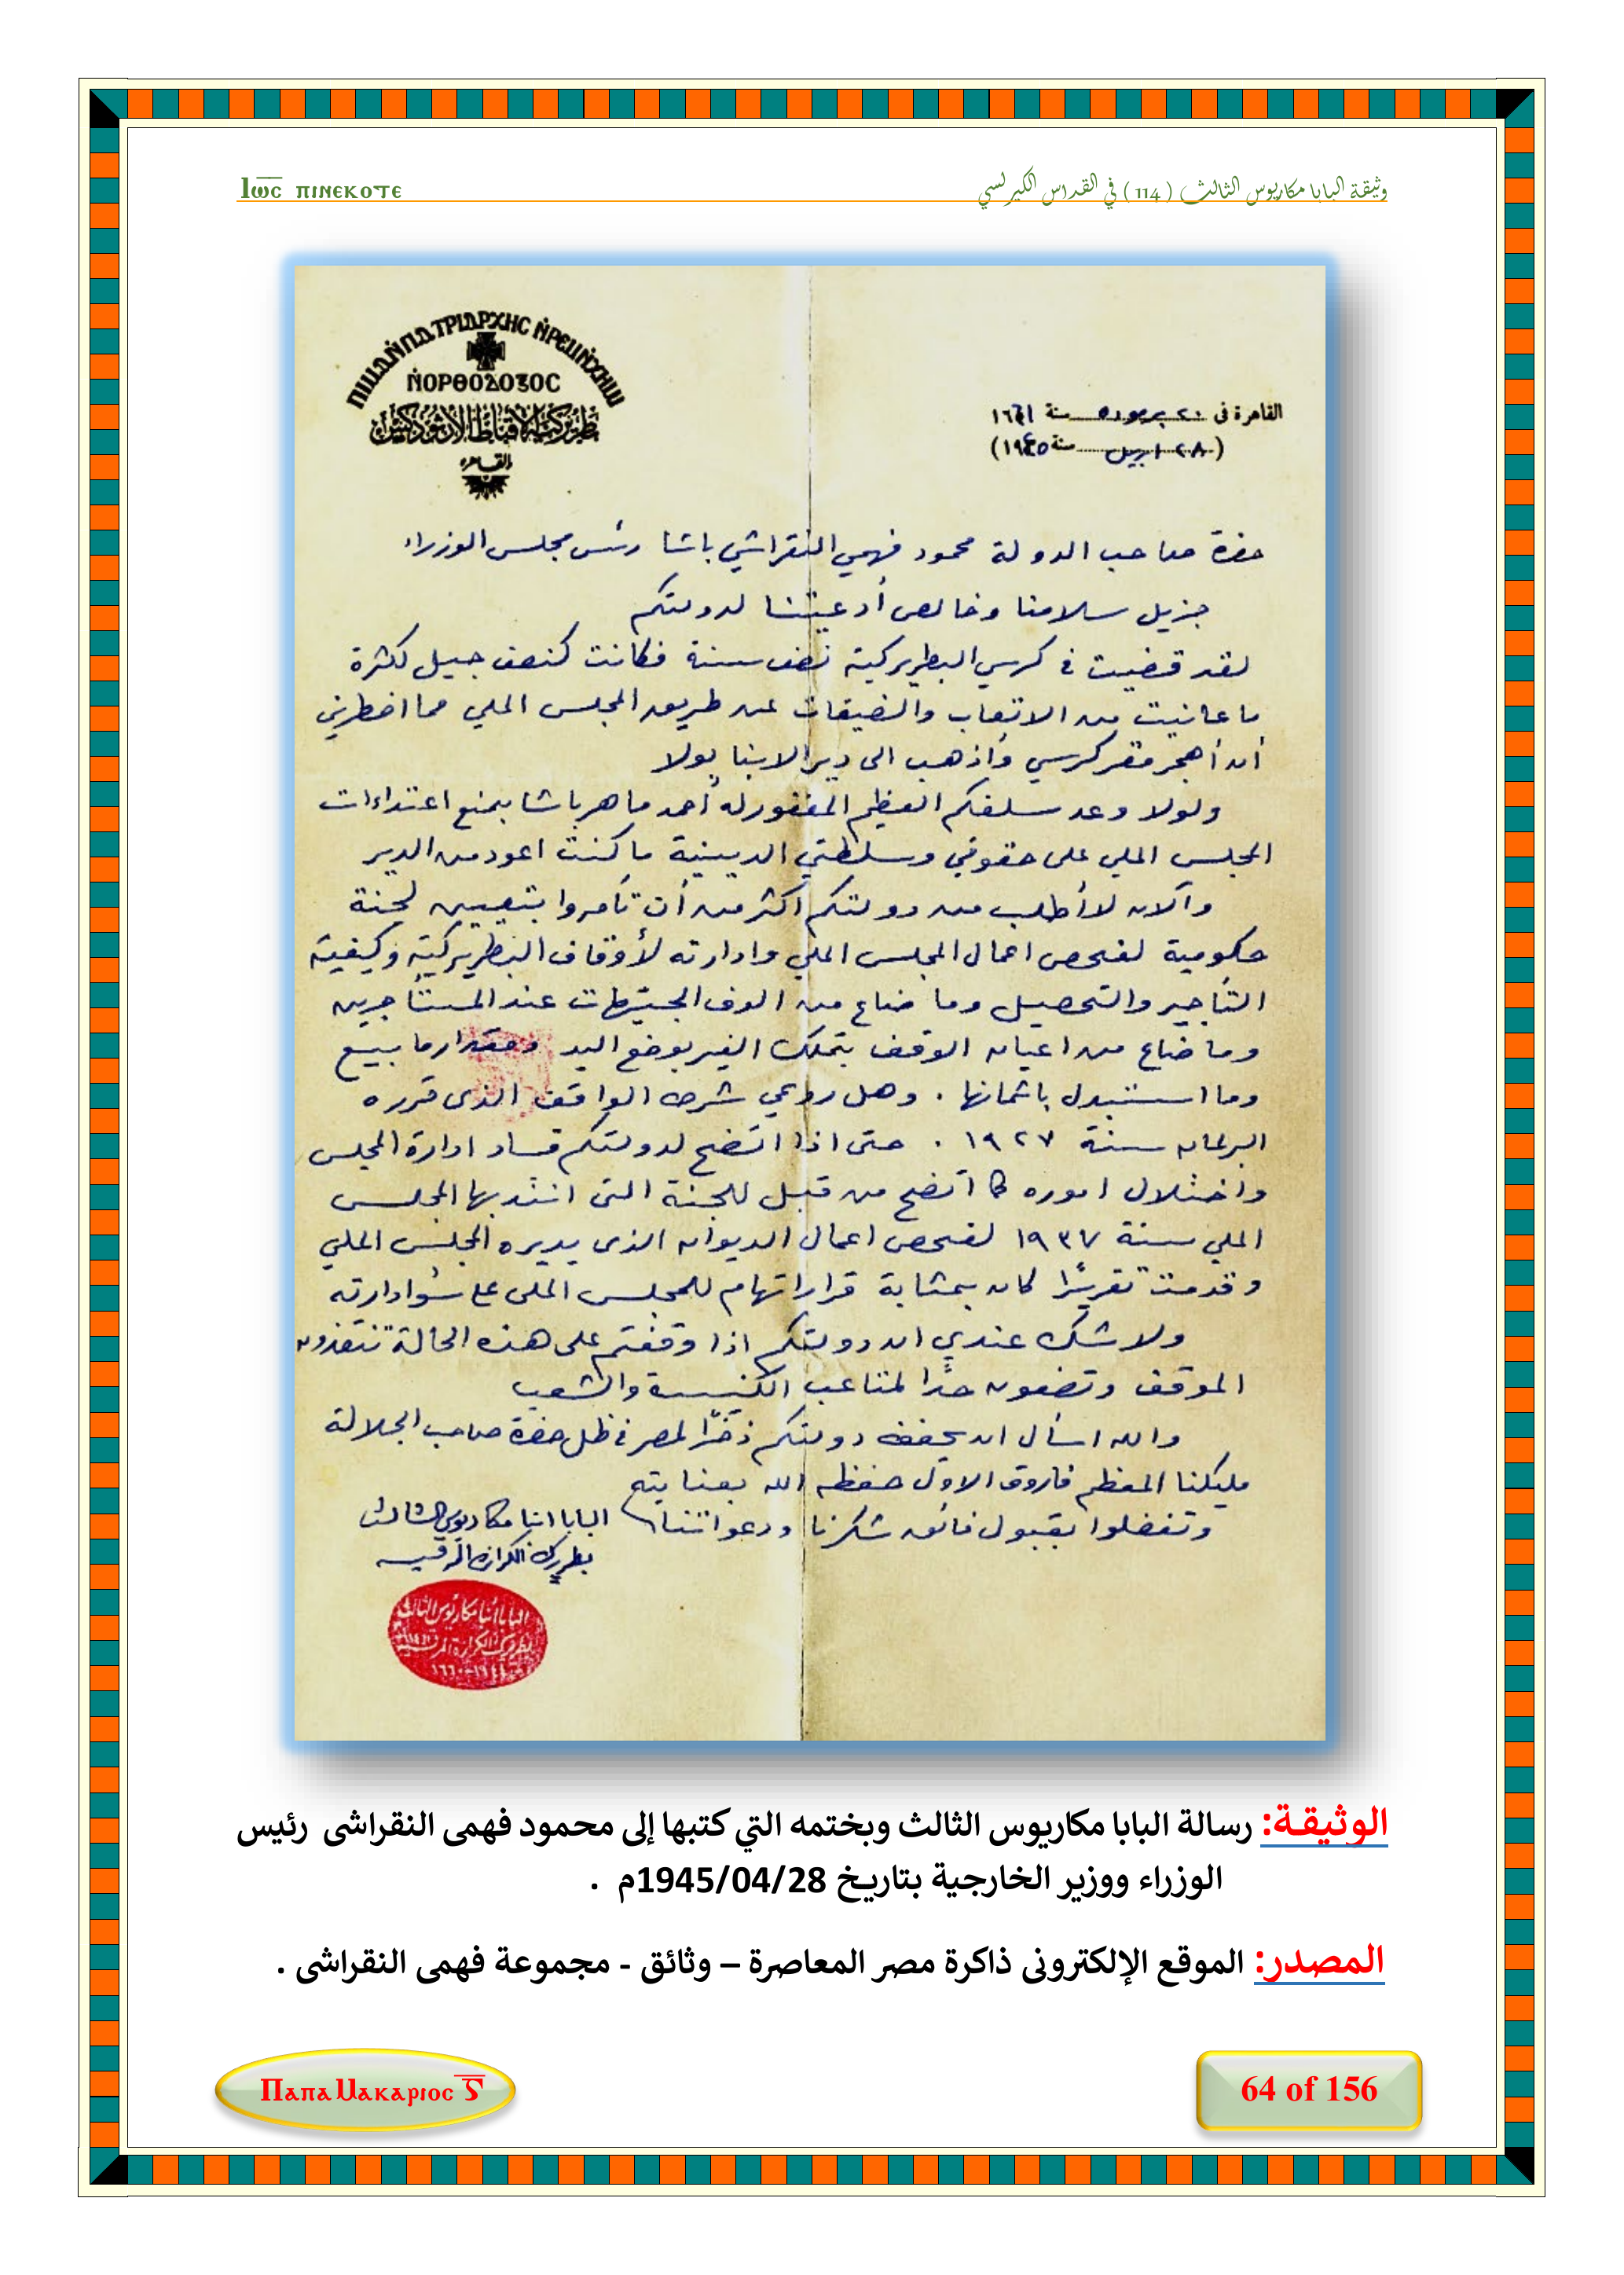 وثيقة البابا مكاريوس الثالث ( 114 ) في القداس الكيرلسي
Ⲓⲱ̅ⲥ̅ ⲡⲓⲛⲉⲕⲟⲧⲉ
ⲚⲞⲢⲐⲞⲆⲞⲜⲞⲤ
بطريركية الاقباط الأرثوذكس
القاهرة
القاهرة فى ٢٠ برموده سنة ١٦٦١
(٢٨ ابريل سنة ١٩٤٥)
حضرة صاحب الدولة محمود فهمي النقراشي باشا رئيس مجلس الوزراء
جزيل سلامنا وخالص أدعيتنا لدولتكم
لقد قضيت في كرسي البطريركية نصف سنة فكانت كنصف جيل لكثرة
ما عانيت من الاتعاب والضيقات عن طريق المجلس الملي مما اضطرني
أن أهجر مقر كرسي وأذهب الى دير الانبا بولا
ولولا وعد سلفكم العظيم المغفور له أحمد ماهر باشا بمنع اعتداءات
المجلس الملي على حقوقي وسلطتي الدينية ما كنت اعود من الدير
والآن لا أطلب من دولتكم اكثر من أن تأمروا بتعيين لجنة
حكومية لفحص اعمال المجلس الملي وادارته لأوقاف البطريركية وكيفية
التأجير والتحصيل وما ضاع من الوف الجنيهات عند المستأجرين
وما ضاع من اعيان الوقف بتملك الغير بوضع اليد ومقدار ما بيع
وما استبدل باثمانها . وهل روعي شرط الواقف الذى قرره
البرلمان سنة ١٩٢٧ . حتى اذا اتضح لدولتكم فساد ادارة المجلس
واختلال اموره كما اتضح من قبل للجنة التى انتدبها المجلس
الملي سنة ١٩٣٧ لفحص اعمال الديوان الذى يديره المجلس الملي
وقدمت تقريرًا كان بمثابة قرار اتهام للمجلس الملى على سوء ادارته
ولا شك عندي ان دولتكم اذا وقفتم على هذه الحالة تنقذون
الموقف وتضعون حدًا لمتاعب الكنيسة والشعب
والله اسأل ان يحفظ دولتكم ذخرًا لمصر في ظل حضرة صاحب الجلالة
مليكنا المعظم فاروق الاول حفظه الله بعنايته
وتفضلوا بقبول فائق شكرنا ودعواتنا
البابا انبا مكاريوس الثالث
بطريرك الكرازة المرقسية
البابا أنبا مكاريوس الثالث
بطريرك الكرازة المرقسية
١٦٦٠-١٩٤٤
الوثيقة: رسالة البابا مكاريوس الثالث وبختمه التي كتبها إلى محمود فهمى النقراشى رئيس
الوزراء ووزير الخارجية بتاريخ 1945/04/28م .
المصدر: الموقع الإلكترونى ذاكرة مصر المعاصرة – وثائق - مجموعة فهمى النقراشى .
Ⲡⲁⲡⲁ Ⲙⲁⲕⲁⲣⲓⲟⲥ Ⲋ̅
64 of 156